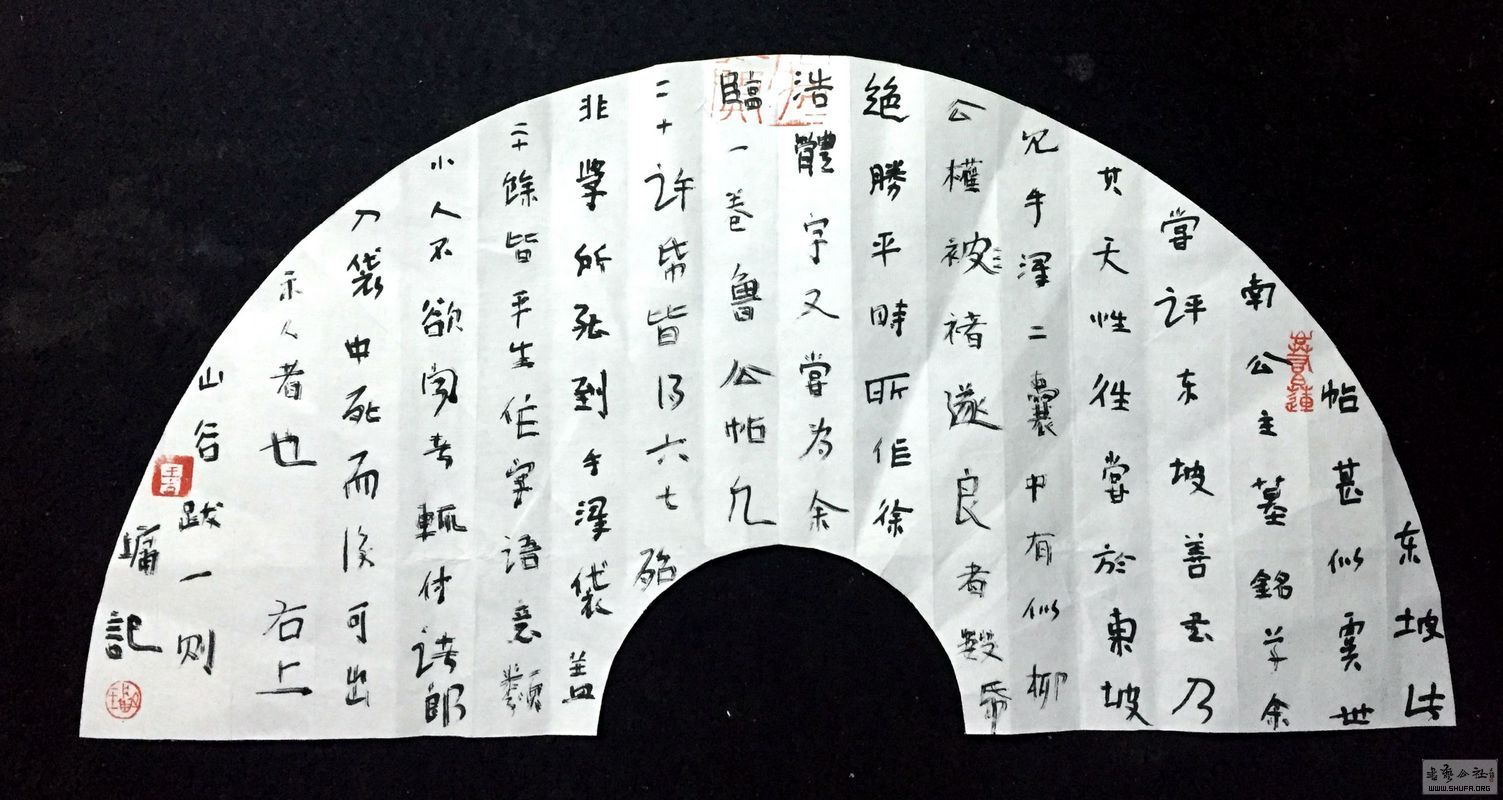 东坡此
帖甚似虞世
南公主墓銘草余
嘗評东坡善書乃
其天性往嘗於東坡
見手澤二囊中有似柳
公權被褚遂良者數帋
絕勝平時所作徐
浩體字又嘗为余
臨一卷魯公帖凡
二十許帋皆得六七殆
非學所能到手澤袋蓋
二十餘皆平生作字語意類
小人不欲聞者輒付諸郎
入袋中死而後可出
示人者也 右上
山谷跋一则
墉記
书艺公社
WWW.SHUFA.ORG